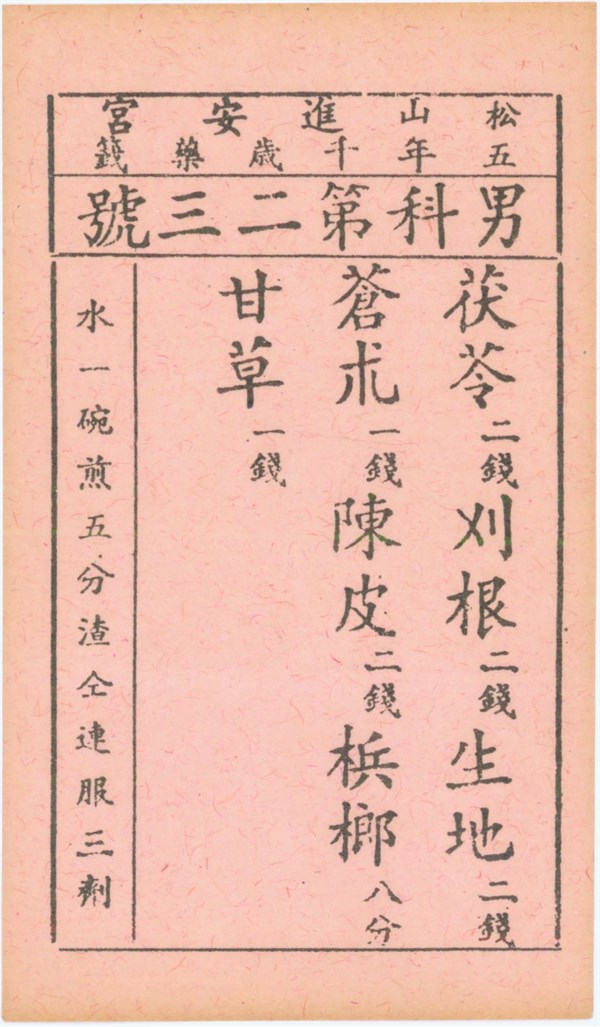 松山進安宮
五年千歲藥籤
男科第二三號
茯苓二錢刈根二錢生地二錢
蒼朮一錢陳皮二錢梹榔八分
甘草一錢
水一碗煎五分渣仝連服三劑